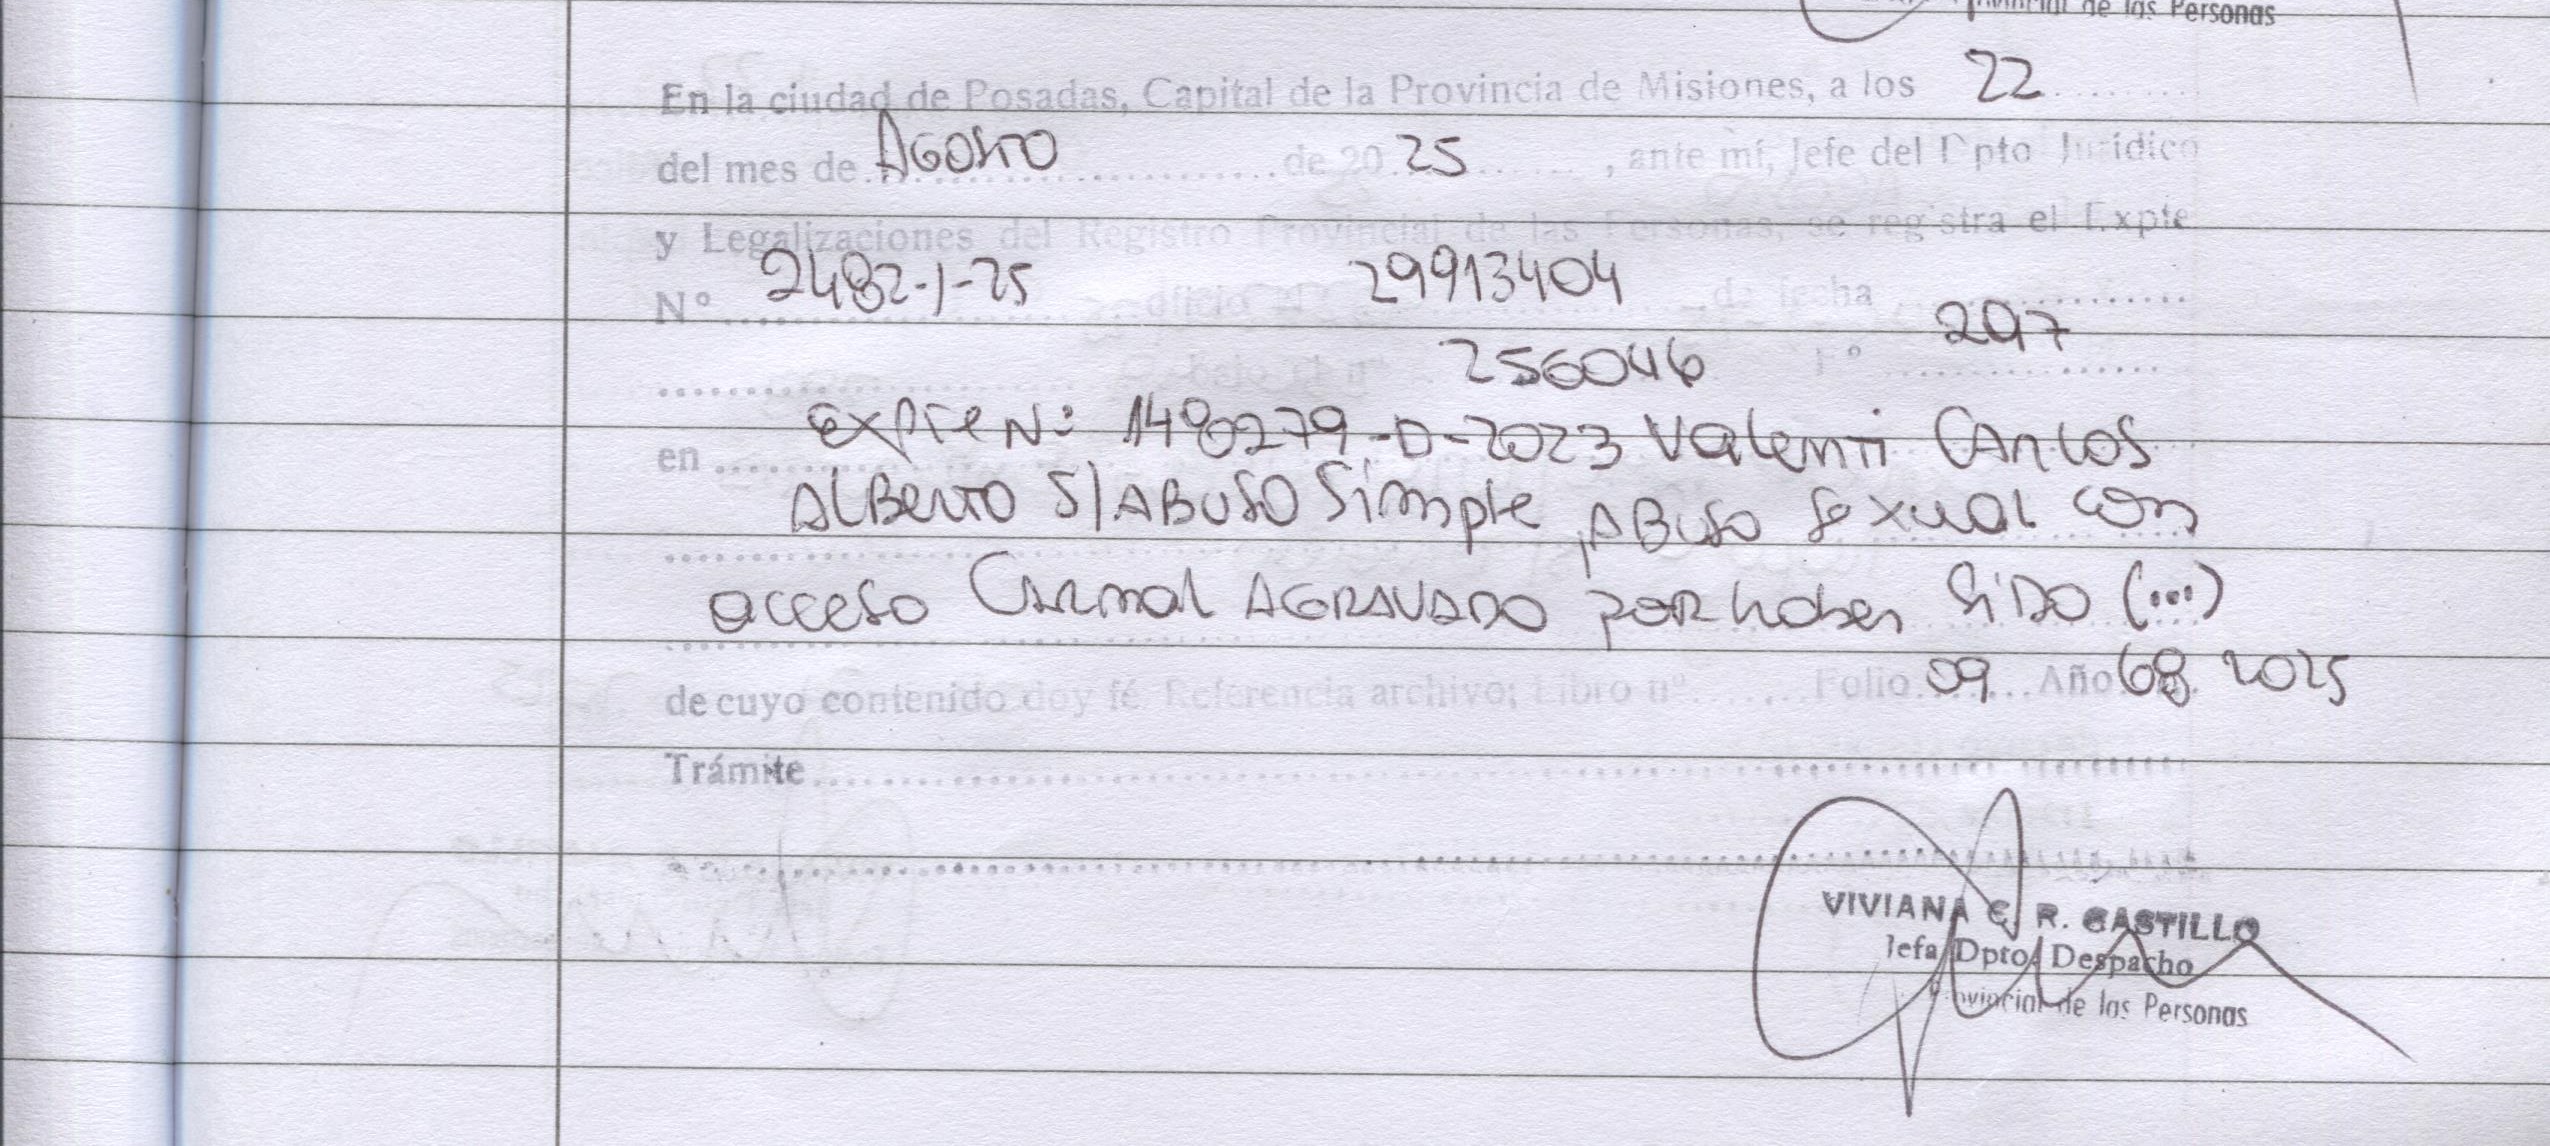 Provincial de las Personas
En la ciudad de Posadas, Capital de la Provincia de Misiones, a los 22
del mes de Agosto de 20 25, ante mí, Jefe del Dpto Jurídico
y Legalizaciones del Registro Provincial de las Personas, se registra el Expte
Nº 2482-1-25 oficio Nº 29913404 de fecha
bajo el nº 256046 Fº 297
en Expte Nº: 1490279-D-2023 Valenti Carlos
Alberto S/ Abuso Simple, Abuso Sexual con
acceso Carnal AGRAVADO por haber sido (...)
de cuyo contenido doy fé Referencia archivo; Libro nº Folio 09 Año 68 2025
Trámite
VIVIANA C. R. CASTILLO
Jefa Dpto. Despacho
Provincial de las Personas